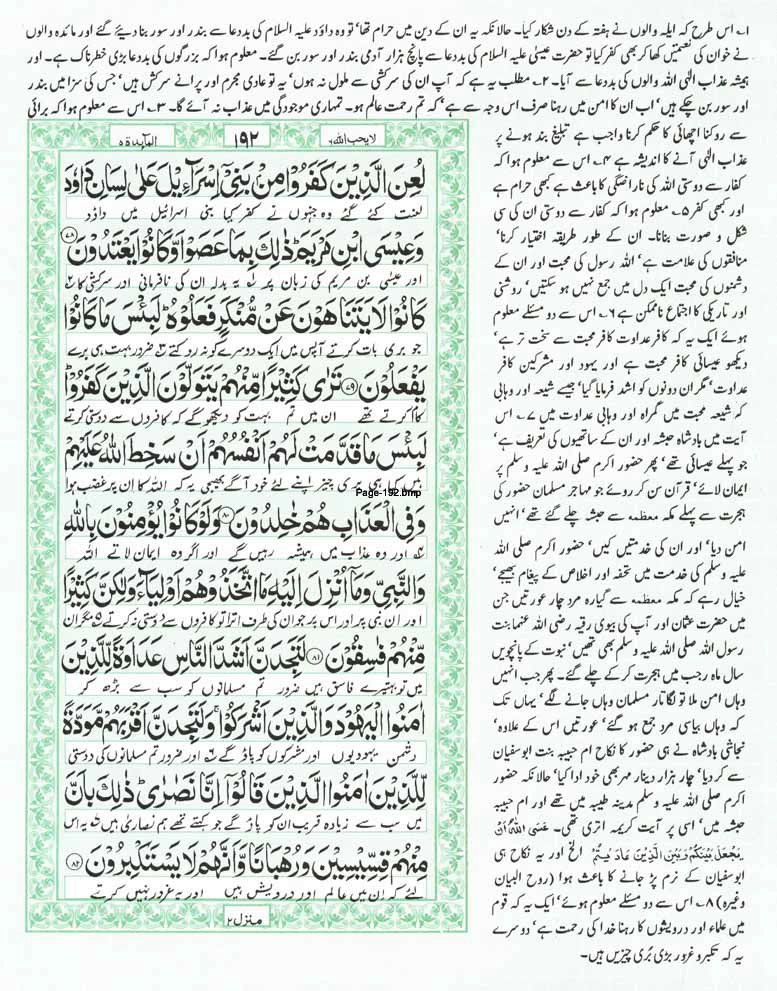 ۱۔ اس طرح کہ ایلہ والوں نے ہفتہ کے دن شکار کیا۔ حالانکہ یہ ان کے دین میں حرام تھا، تو وہ داؤد علیہ السلام کی بددعا سے بندر اور سور بنا دیئے گئے اور مائدہ والوں
نے خوان کی نعمتیں کھا کر بھی کفر کیا تو حضرت عیسیٰ علیہ السلام کی بددعا سے پانچ ہزار آدمی بندر اور سور بن گئے۔ معلوم ہوا کہ بزرگوں کی بددعا بڑی خطرناک ہے۔ اور
ہمیشہ عذاب الٰہی اللہ والوں کی بددعا سے آیا۔ ۲۔ مطلب یہ ہے کہ آپ ان کی سرکشی سے ملول نہ ہوں، یہ تو عادی مجرم اور پرانے سرکش ہیں، جس کی سزا میں بندر
اور سور بن چکے ہیں، اب ان کا امن میں رہنا صرف اس وجہ سے ہے، کہ تم رحمت عالم ہو۔ تمہاری موجودگی میں عذاب نہ آئے گا۔ ۳۔ اس سے معلوم ہوا کہ برائی
سے روکنا اچھائی کا حکم کرنا واجب ہے تبلیغ بند ہونے پر
عذاب الٰہی آنے کا اندیشہ ہے ۴۔ اس سے معلوم ہوا کہ
کفار سے دوستی اللہ کی ناراضگی کا باعث ہے کبھی حرام ہے
اور کبھی کفر ۵۔ معلوم ہوا کہ کفار سے دوستی ان کی سی
شکل و صورت بنانا۔ ان کے طور طریقہ اختیار کرنا،
منافقوں کی علامت ہے، اللہ رسول کی محبت اور ان کے
دشمنوں کی محبت ایک دل میں جمع نہیں ہو سکتیں، روشنی
اور تاریکی کا اجتماع ناممکن ہے ۶۔ اس سے دو مسئلے معلوم
ہوئے ایک یہ کہ کافر عداوت کافر محبت سے سخت تر ہے،
دیکھو عیسائی کافر محبت ہے اور یہود اور مشرکین کافر
عداوت، مگر ان دونوں کو اشد فرمایا گیا، جیسے شیعہ اور وہابی
کہ شیعہ محبت میں گمراہ اور وہابی عداوت میں ۷۔ اس
آیت میں بادشاہ حبشہ اور ان کے ساتھیوں کی تعریف ہے،
جو پہلے عیسائی تھے، پھر حضور اکرم صلی اللہ علیہ وسلم پر
ایمان لائے، قرآن سن کر روئے جو مہاجر مسلمان حضور کی
ہجرت سے پہلے مکہ معظمہ سے حبشہ چلے گئے تھے، انہیں
امن دیا، اور ان کی خدمتیں کیں، حضور اکرم صلی اللہ
علیہ وسلم کی خدمت میں تحفہ اور اخلاص کے پیغام بھیجے،
خیال رہے کہ مکہ معظمہ سے گیارہ مرد چار عورتیں جن
میں حضرت عثمان اور آپ کی بیوی رقیہ رضی اللہ عنہما بنت
رسول اللہ صلی اللہ علیہ وسلم بھی تھیں، نبوت کے پانچویں
سال ماہ رجب میں ہجرت کر کے چلے گئے۔ پھر جب انہیں
وہاں امن ملا تو لگاتار مسلمان وہاں جانے لگے، یہاں تک
کہ وہاں بیاسی مرد جمع ہو گئے، عورتیں اس کے علاوہ،
نجاشی بادشاہ نے ہی حضور کا نکاح ام حبیبہ بنت ابوسفیان
سے کر دیا، چار ہزار دینار مہر بھی خود ادا کیا، حالانکہ حضور
اکرم صلی اللہ علیہ وسلم مدینہ طیبہ میں تھے اور ام حبیبہ
حبشہ میں، اسی پر آیت کریمہ اتری تھی۔ عَسَى اللّٰهُ اَنْ
يَّجْعَلَ بَيْنَكُمْ وَبَيْنَ الَّذِيْنَ عَادَيْتُمْ الخ اور یہ نکاح ہی
ابوسفیان کے نرم پڑ جانے کا باعث ہوا (روح البیان
وغیرہ) ۸۔ اس سے دو مسئلے معلوم ہوئے، ایک یہ کہ قوم
میں علماء اور درویشوں کا رہنا خدا کی رحمت ہے، دوسرے
یہ کہ تکبر و غرور بڑی بُری چیزیں ہیں۔
لایحب اللہ ۶ ۱۹۲ المآئدۃ ۵
لُعِنَ الَّذِيْنَ كَفَرُوْا مِنْۢ بَنِيْٓ اِسْرَآءِيْلَ عَلٰى لِسَانِ دَاوٗدَ
لعنت کئے گئے وہ جنہوں نے کفر کیا بنی اسرائیل میں داؤد
وَعِيْسَى ابْنِ مَرْيَمَ ؕ ذٰلِكَ بِمَا عَصَوْا وَّكَانُوْا يَعْتَدُوْنَ ﴿۷۸﴾
اور عیسٰی بن مریم کی زبان پر یہ بدلہ ان کی نافرمانی اور سرکشی کا
كَانُوْا لَا يَتَنَاهَوْنَ عَنْ مُّنْكَرٍ فَعَلُوْهُ ؕ لَبِئْسَ مَا كَانُوْا
جو بری بات کرتے آپس میں ایک دوسرے کو نہ روکتے ضرور بہت ہی برے
يَفْعَلُوْنَ ﴿۷۹﴾ تَرٰى كَثِيْرًا مِّنْهُمْ يَتَوَلَّوْنَ الَّذِيْنَ كَفَرُوْا ؕ
کام کرتے تھے ان میں تم بہت کو دیکھو گے کہ کافروں سے دوستی کرتے
لَبِئْسَ مَا قَدَّمَتْ لَهُمْ اَنْفُسُهُمْ اَنْ سَخِطَ اللّٰهُ عَلَيْهِمْ
ہیں کیا ہی بری چیز اپنے لئے خود آگے بھیجی یہ کہ اللہ کا ان پر غضب ہوا
Page-192.bmp
وَفِي الْعَذَابِ هُمْ خٰلِدُوْنَ ﴿۸۰﴾ وَلَوْ كَانُوْا يُؤْمِنُوْنَ بِاللّٰهِ
اور وہ عذاب میں ہمیشہ رہیں گے اور اگر وہ ایمان لاتے اللہ
وَالنَّبِيِّ وَمَآ اُنْزِلَ اِلَيْهِ مَا اتَّخَذُوْهُمْ اَوْلِيَآءَ وَلٰكِنَّ كَثِيْرًا
اور ان نبی پر اور اس پر جو ان کی طرف اترا تو کافروں سے دوستی نہ کرتے مگر ان
مِّنْهُمْ فٰسِقُوْنَ ﴿۸۱﴾ لَتَجِدَنَّ اَشَدَّ النَّاسِ عَدَاوَةً لِّلَّذِيْنَ
میں تو بہتیرے فاسق ہیں ضرور تم مسلمانوں کو سب سے بڑھ کر
اٰمَنُوا الْيَهُوْدَ وَالَّذِيْنَ اَشْرَكُوْا ۚ وَلَتَجِدَنَّ اَقْرَبَهُمْ مَّوَدَّةً
دشمن یہودیوں اور مشرکوں کو پاؤ گے اور ضرور تم مسلمانوں کی دوستی
لِّلَّذِيْنَ اٰمَنُوا الَّذِيْنَ قَالُوْٓا اِنَّا نَصٰرٰى ؕ ذٰلِكَ بِاَنَّ
میں سب سے زیادہ قریب ان کو پاؤ گے جو کہتے تھے ہم نصارٰی ہیں یہ اس
مِنْهُمْ قِسِّيْسِيْنَ وَرُهْبَانًا وَّاَنَّهُمْ لَا يَسْتَكْبِرُوْنَ ﴿۸۲﴾
لئے کہ ان میں عالم اور درویش ہیں اور یہ غرور نہیں کرتے
منزل ۲